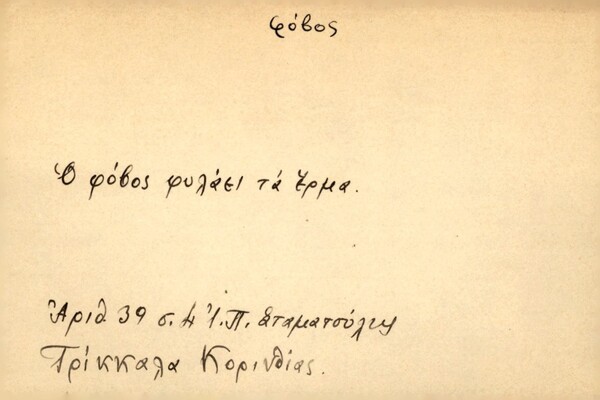 φόβος
Ὁ φόβος φυλάει τά ἔρμα.
Ἀριθ 39 σ. 4 Ἰ. Π. Σταματούλης
Τρίκκαλα Κορινθίας.